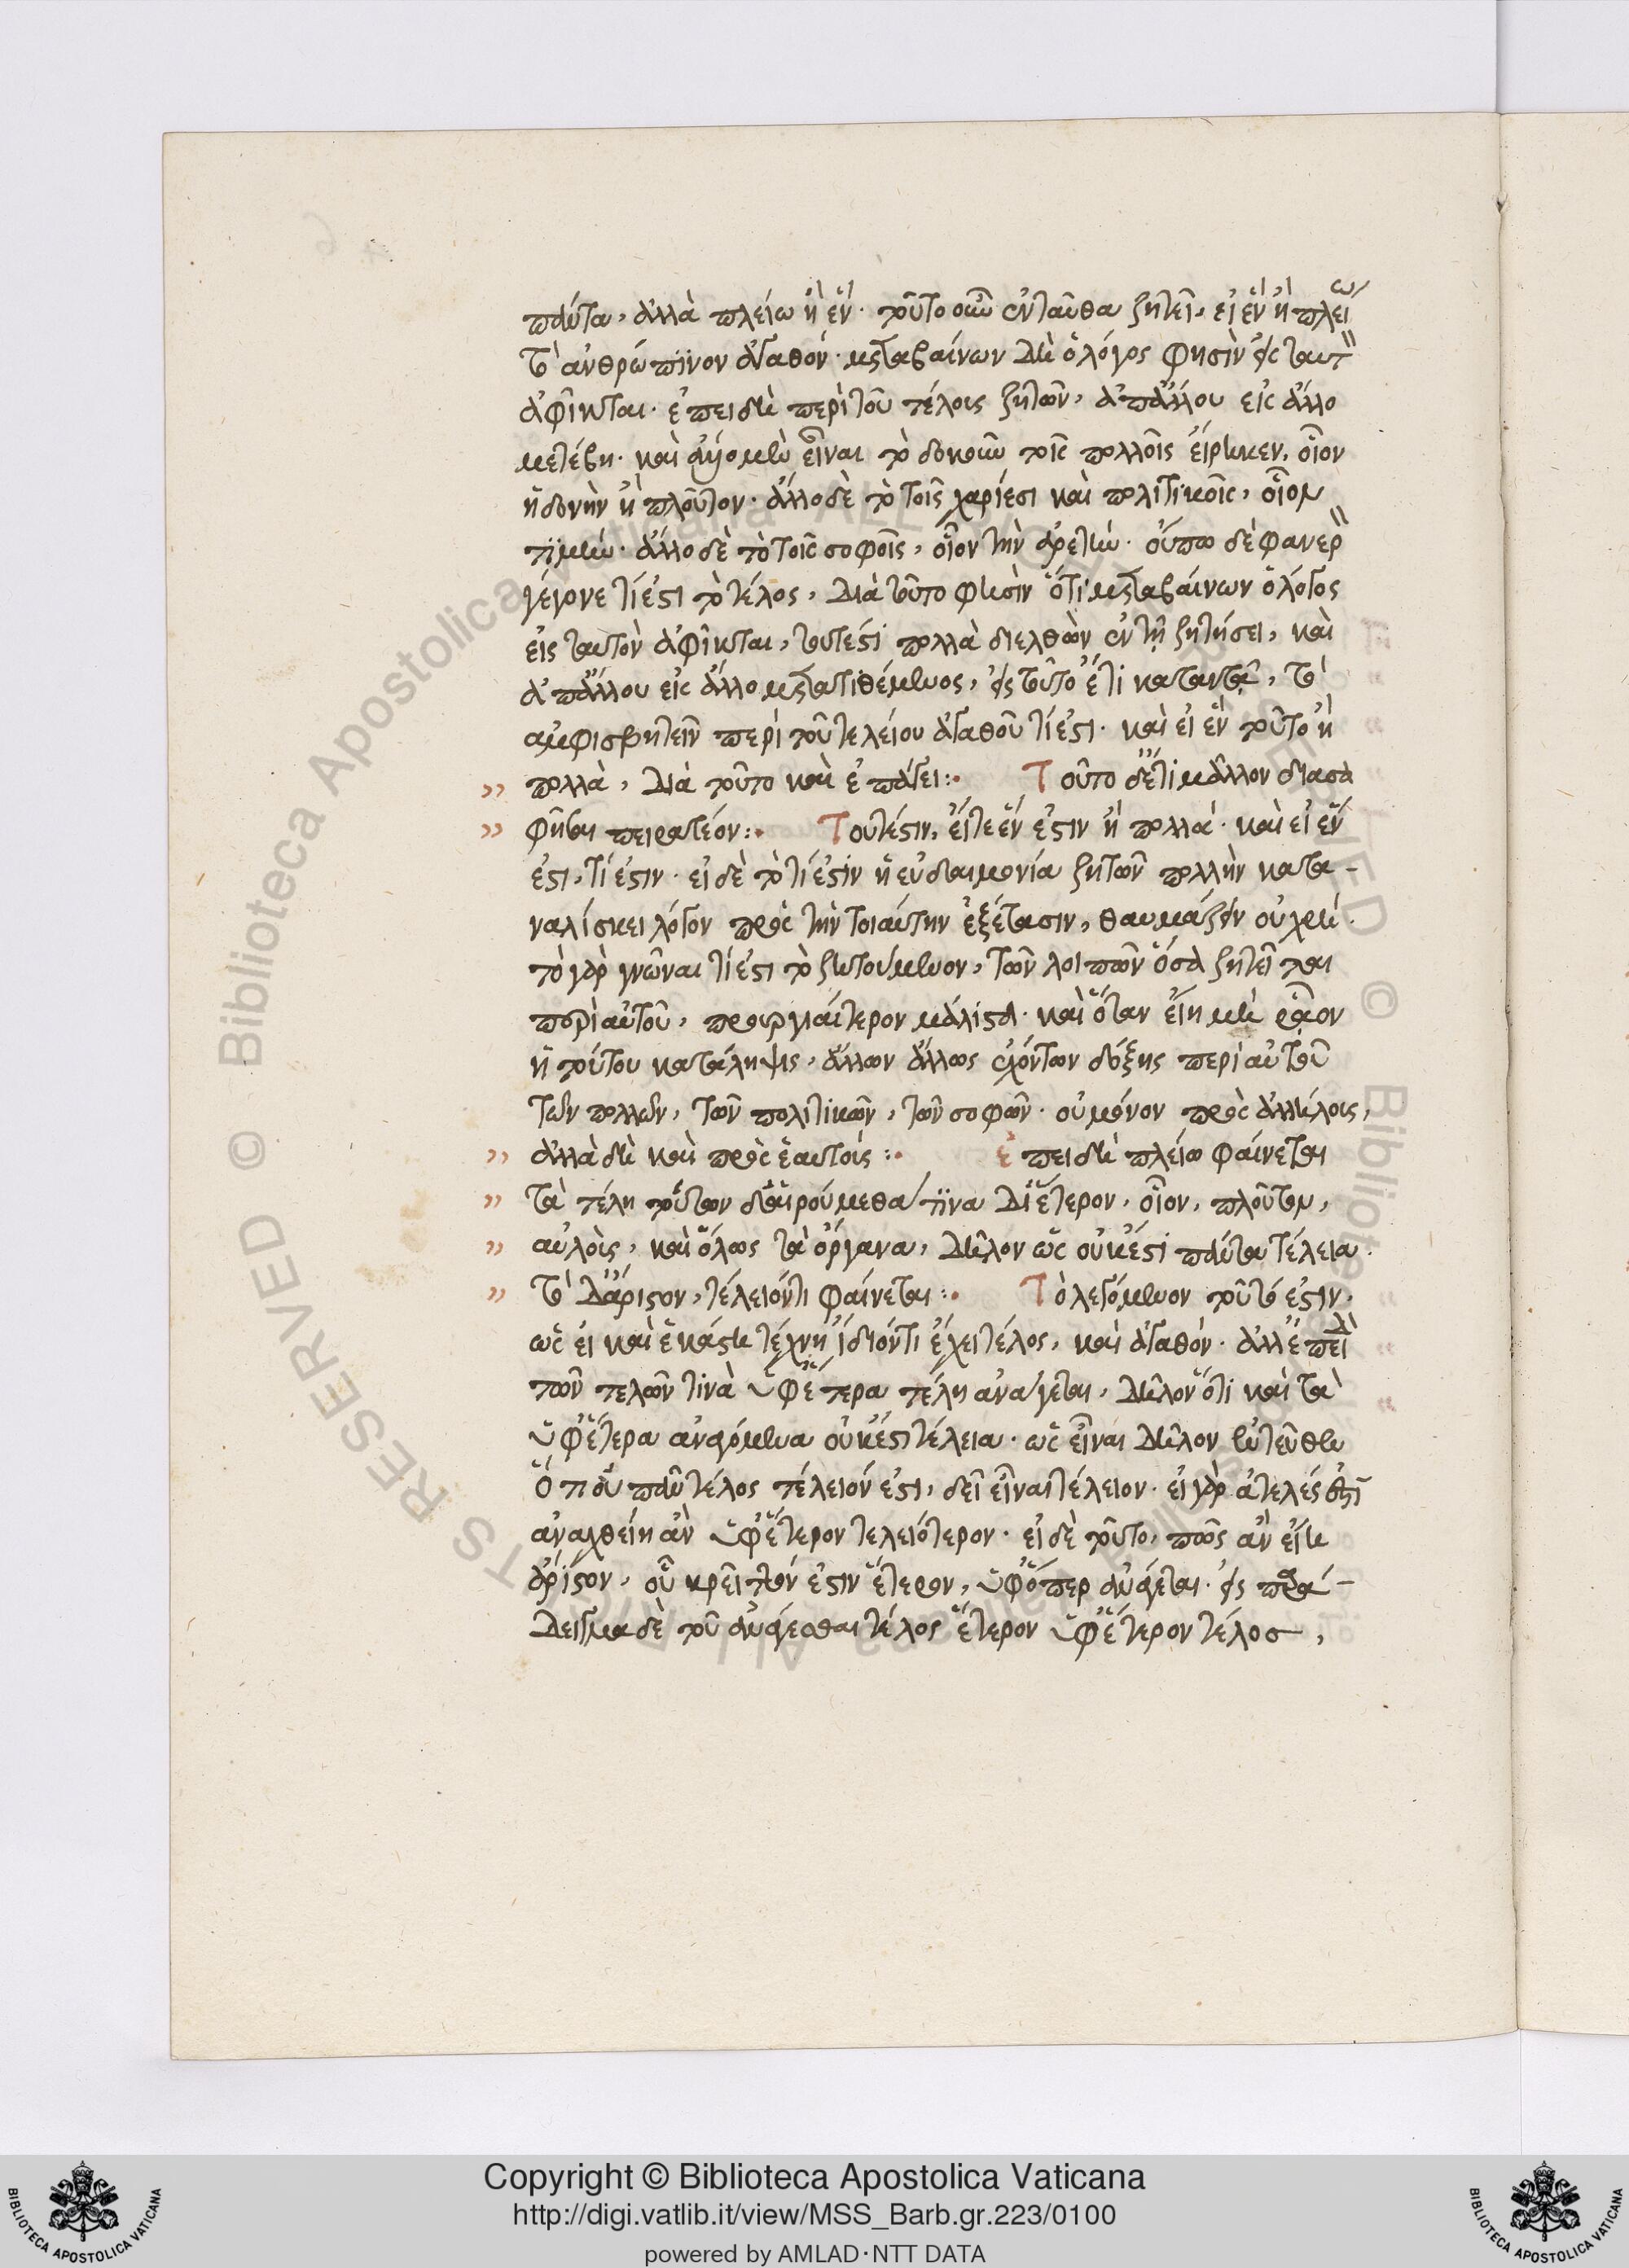 πάντα, ἀλλὰ πλείω ἢ ἕν. τοῦτο οὖν ἐνταῦθα ζητεῖ, εἰ ἓν ἢ πλείω
τὸ ἀνθρώπινον ἀγαθόν. μεταβαίνων δὴ ὁ λόγος φησὶν εἰς ταυτὸν
ἀφῖκται. ἐπειδὴ περὶ τοῦ τέλους ζητῶν, ἀπ' ἄλλου εἰς ἄλλο
μετέβη. καὶ ἄλλο μὲν εἶναι τὸ δοκοῦν τοῖς πολλοῖς εἴρηκεν, οἷον
ἡδονὴν ἢ πλοῦτον. ἄλλο δὲ τὸ τοῖς χαρίεσι καὶ πολιτικοῖς, οἷον
τιμήν. ἄλλο δὲ τὸ τοῖς σοφοῖς, οἷον τὴν ἀρετήν. οὔπω δὲ φανερὸν
γέγονε τί ἐστι τὸ τέλος, διὰ τοῦτο φησὶν ὅτι μεταβαίνων ὁ λόγος
εἰς ταυτὸν ἀφῖκται, τουτέστι πολλὰ διελθὼν ἐν τῇ ζητήσει, καὶ
ἀπ' ἄλλου εἰς ἄλλο μετατιθέμενος, εἰς τοῦτο ἔτι καταντᾷ, τὸ
ἀμφισβητεῖν περὶ τοῦ τελείου ἀγαθοῦ τί ἐστι. καὶ εἰ ἓν τοῦτο ἢ
πολλὰ, διὰ τοῦτο καὶ ἐπάγει: Τοῦτο δ' ἔτι μᾶλλον διασα
φῆσαι πειρατέον: Τουτέστιν, εἴτε ἕν ἐστιν ἢ πολλά. καὶ εἰ ἕν
ἐστι, τί ἐστιν. εἰ δὲ τὸ τί ἐστιν ἡ εὐδαιμονία ζητῶν πολλὴν κατα-
ναλίσκει λόγον πρὸς τὴν τοιαύτην ἐξέτασιν, θαυμάζειν οὐ χρή.
τὸ γὰρ γνῶναι τί ἐστι τὸ ζητούμενον, τῶν λοιπῶν ὅσα ζητεῖται
περὶ αὐτοῦ, προυργιαίτερον μάλιστα. καὶ ὅταν εἴη μὴ ῥᾷον
ἡ τούτου κατάληψις, ἄλλων ἄλλως ἐχόντων δόξης περὶ αὐτοῦ
τῶν πολλῶν, τῶν πολιτικῶν, τῶν σοφῶν. οὐ μόνον πρὸς ἀλλήλους,
ἀλλὰ δὴ καὶ πρὸς ἑαυτούς: ἐπειδὴ πλείω φαίνεται
τὰ τέλη τούτων δ' αἱρούμεθα τινα δι' ἕτερον, οἷον, πλοῦτον,
αὐλοὺς, καὶ ὅλως τὰ ὄργανα, δῆλον ὡς οὐκ ἔστι πάντα τέλεια.
τὸ δ' ἄριστον, τέλειόν τι φαίνεται: Τὸ λεγόμενον τοῦτό ἐστιν.
ὡς εἰ καὶ ἑκάστη τέχνη ἴδιόν τι ἔχει τέλος, καὶ ἀγαθόν. ἀλλ' ἐπειδὴ
τῶν τελῶν τινὰ ὑφ' ἕτερα τέλη ἀνάγεται, δῆλον ὅτι καὶ τὰ
ὑφ' ἕτερα ἀναγόμενα οὐκ ἔστι τέλεια. ὡς εἶναι δῆλον ἐντεῦθεν
ὅτι οὐ πᾶν τέλος τέλειόν ἐστι, δεῖ εἶναι τέλειον. εἰ γὰρ ἀτελές ἐστι
ἀναχθείη ἂν ὑφ' ἕτερον τελειότερον. εἰ δὲ τοῦτο, πῶς ἂν εἴη
ἄριστον, οὗ κρεῖττόν ἐστιν ἕτερον, ὑφ' ὅπερ ἀνάγεται. εἰς παρά-
δειγμα δὲ τοῦ ἀνάγεσθαι τέλος ἕτερον ὑφ' ἕτερον τέλος,
Copyright © Biblioteca Apostolica Vaticana
http://digi.vatlib.it/view/MSS_Barb.gr.223/0100
powered by AMLAD·NTT DATA